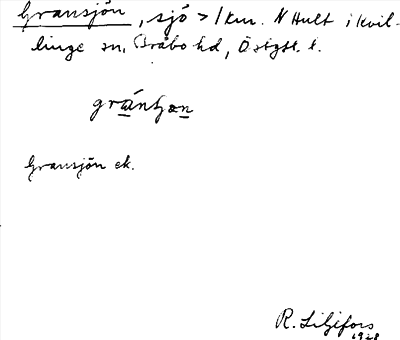 Gransjön, sjö > 1 km. N Hult i Kvil-
linge sn, Bråbo hd, Östgöt. l.
Gransjön ek.
R. Liljefors